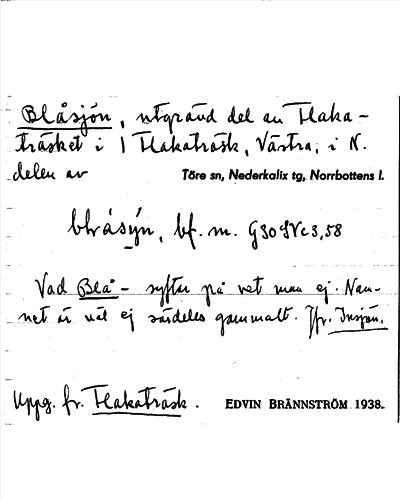 Blåsjön, utgränd del av Flaka-
träsket i 1 Flakaträsk, Västra, i N.
delen av Töre sn, Nederkalix tg, Norrbottens l.
blråsy̭n, bf. m. G30SVc3,58
Vad Blå- syftar på vet man ej. Nam-
net är väl ej särdeles gammalt. Jfr. Insjön.
Uppg. fr. Flakaträsk. EDVIN BRÄNNSTRÖM 1938.